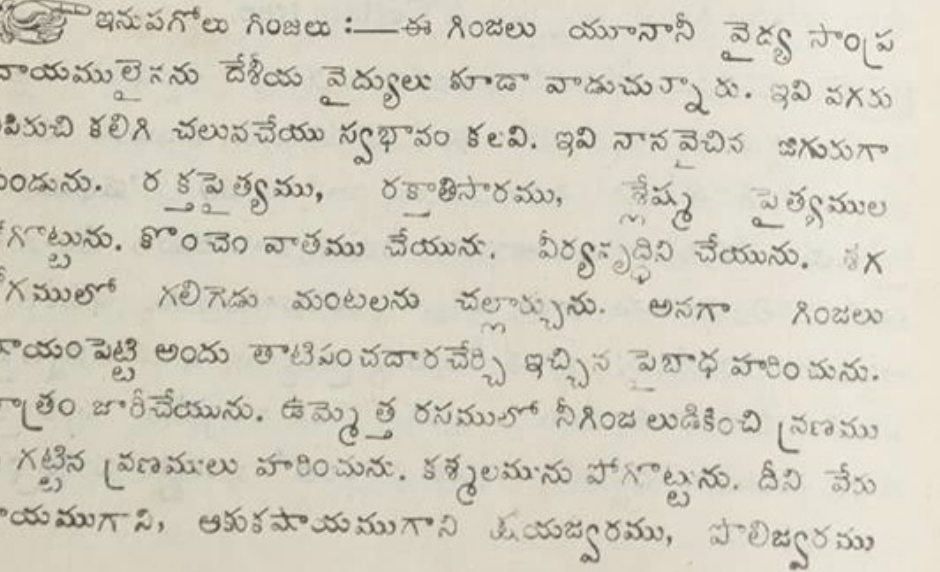 ఇనుపగోలు గింజలు :— ఈ గింజలు యూనానీ వైద్య సాంప్ర
దాయములైనను దేశీయ వైద్యులు కూడా వాడుచున్నారు. ఇవి వగరు
పిరుచి కలిగి చలువచేయు స్వభావం కలవి. ఇవి నానవైచిన జిగురుగా
ండును. రక్తపైత్యము, రక్తాతిసారము, శ్లేష్మ పైత్యముల
గొట్టును. కొంచెం వాతము చేయును. వీర్యవృద్ధిని చేయును. శగ
గములో గలిగెడు మంటలను చల్లార్చును. అనగా గింజలు
షాయంపెట్టి అందు తాటిపంచదారచేర్చి ఇచ్చిన పైబాధ హరించును.
త్రం జారీచేయును. ఉమ్మెత్త రసములో నీగింజలుడికించి వ్రణము
గట్టిన వ్రణములు హరించును. కశ్మలమును పోగొట్టును. దీని వేరు
ాయముగాని, ఆకుకషాయముగాని విషయజ్వరము, హలిజ్వరము